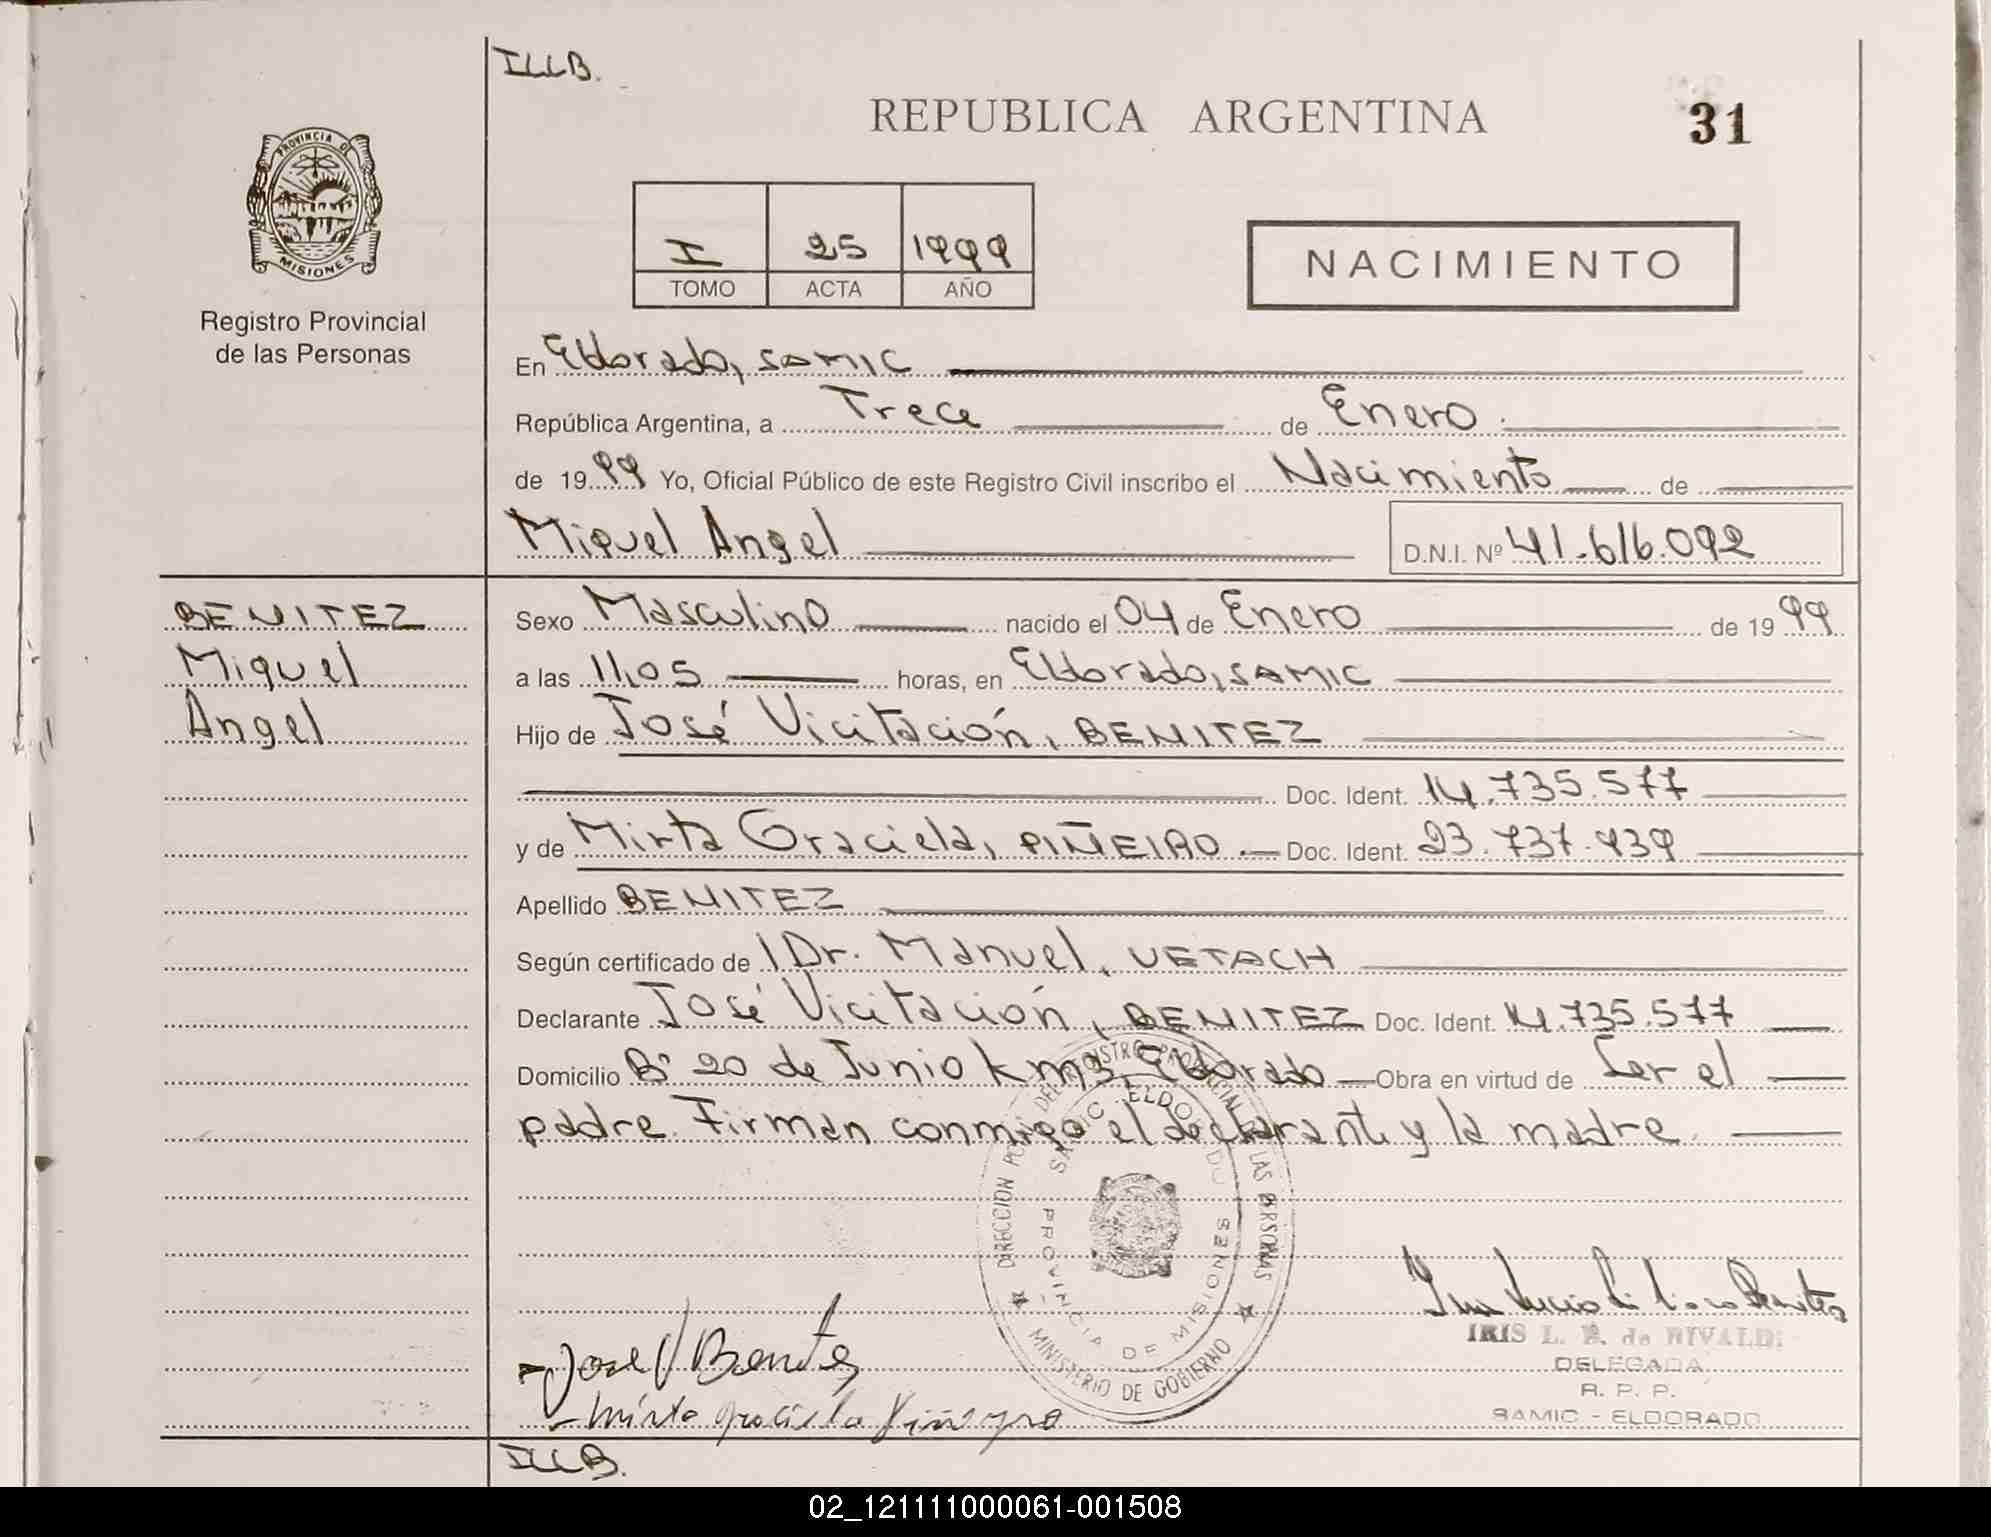 ILLB.
REPUBLICA ARGENTINA 31
PROVINCIA DE
MISIONES
Registro Provincial
de las Personas
I 25 1999
TOMO ACTA AÑO
NACIMIENTO
En Eldorado, SAMIC
República Argentina, a Trece de Enero
de 1999 Yo, Oficial Público de este Registro Civil inscribo el Nacimiento de
Miguel Angel D.N.I. Nº 41.616.092
BENITEZ
Miguel
Angel
Sexo Masculino nacido el 04 de Enero de 1999
a las 11,05 horas, en Eldorado, SAMIC
Hijo de José Vicitación, BENITEZ
Doc. Ident. 14.735.577
y de Mirta Graciela, PIÑEIRO Doc. Ident. 23.737.939
Apellido BENITEZ
Según certificado de l Dr. Manuel, VETACH
Declarante José Vicitación, BENITEZ Doc. Ident. 14.735.577
Domicilio Bº 20 de Junio km 3, Eldorado Obra en virtud de Ser el
padre. Firman conmigo el declarante y la madre.
SAMIC ELDORADO
PROVINCIA DE MISIONES
MINISTERIO DE GOBIERNO
Jose V Benitez
Mirta graciela
IRIS L. B. de RIVALDI
DELEGADA
R. P. P.
SAMIC - ELDORADO
ILLB.
02_121111000061-001508